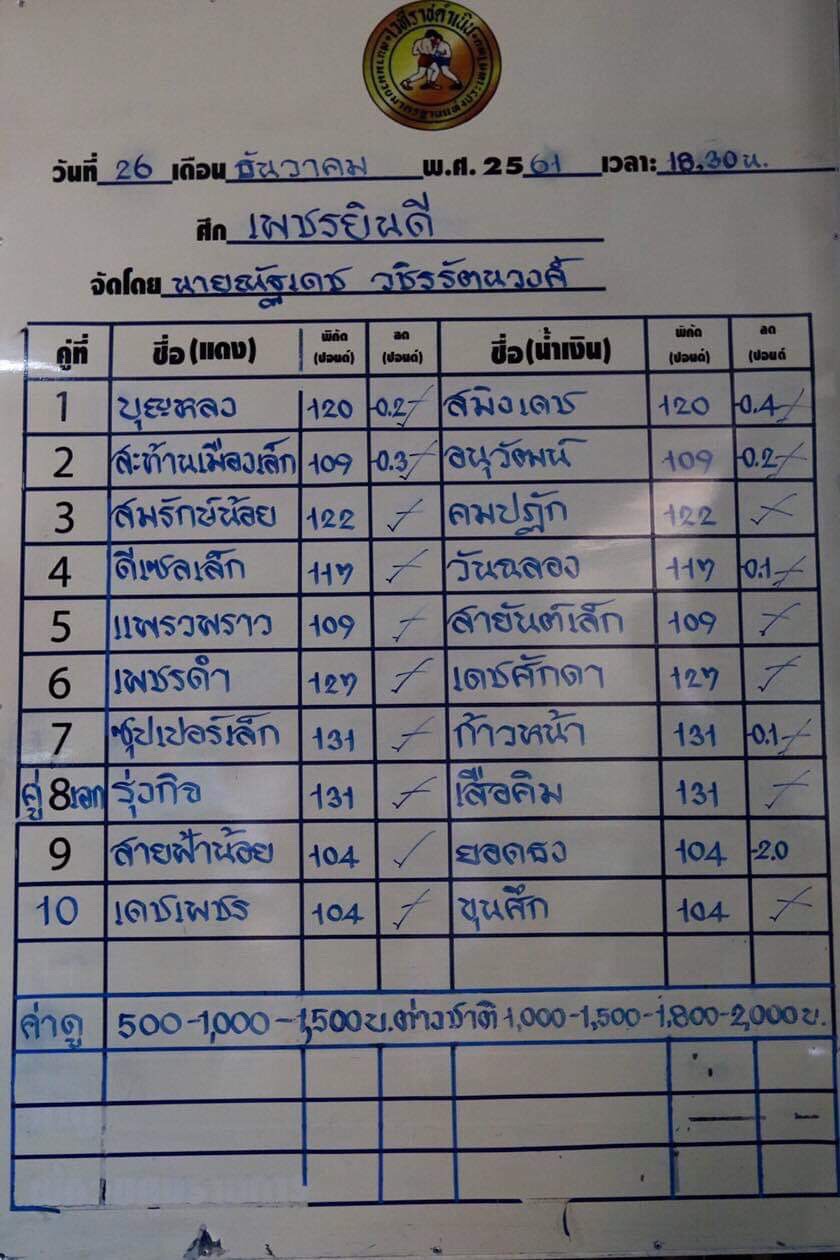 เวทีราชดำเนิน
วันที่ 26 เดือน ธันวาคม พ.ศ. 2561 เวลา: 18.30 น.
ศึก เพชรยินดี
จัดโดย นายณัฐเดช วชิรรัตนวงศ์
คู่ที่ ชื่อ (แดง) พิกัด (ปอนด์) ลด (ปอนด์) ชื่อ (น้ำเงิน) พิกัด (ปอนด์) ลด (ปอนด์
1 บุญหลง 120 -0.2 สมิงเดช 120 -0.4
2 สะท้านเมืองเล็ก 109 -0.3 อนุวัฒน์ 109 -0.2
3 สมรักษ์น้อย 122 คมปฏัก 122
4 ดีเซลเล็ก 117 วันฉลอง 117 -0.1
5 แพรวพราว 109 สายันต์เล็ก 109
6 เพชรดำ 127 เดชศักดา 127
7 ซุปเปอร์เล็ก 131 ก้าวหน้า 131 -0.1
คู่ 8 เอก รุ่งกิจ 131 เสือคิม 131
9 สายฟ้าน้อย 104 ยอดธง 104 -2.0
10 เดชเพชร 104 ขุนศึก 104
ค่าดู 500-1,000-1,500 บ. ต่างชาติ 1,000-1,500-1,800-2,000 บ.